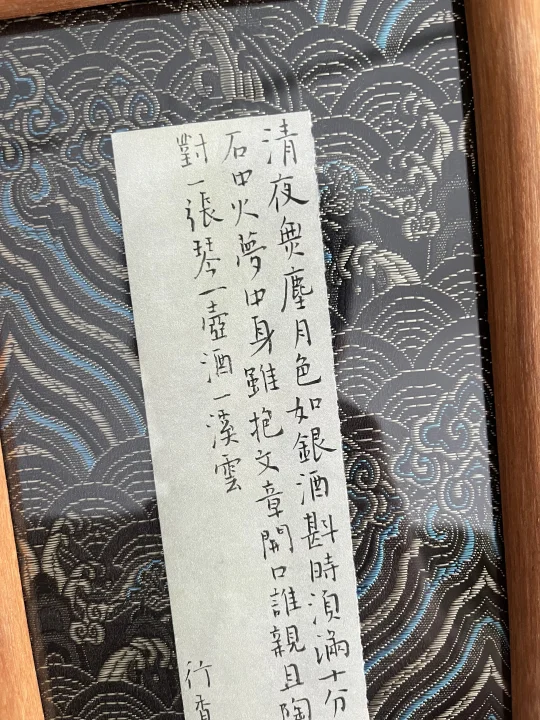 清夜無塵月色如銀酒斟時須滿十分
石中火夢中身雖抱文章開口誰親且陶
對一張琴一壺酒一溪雲
行香